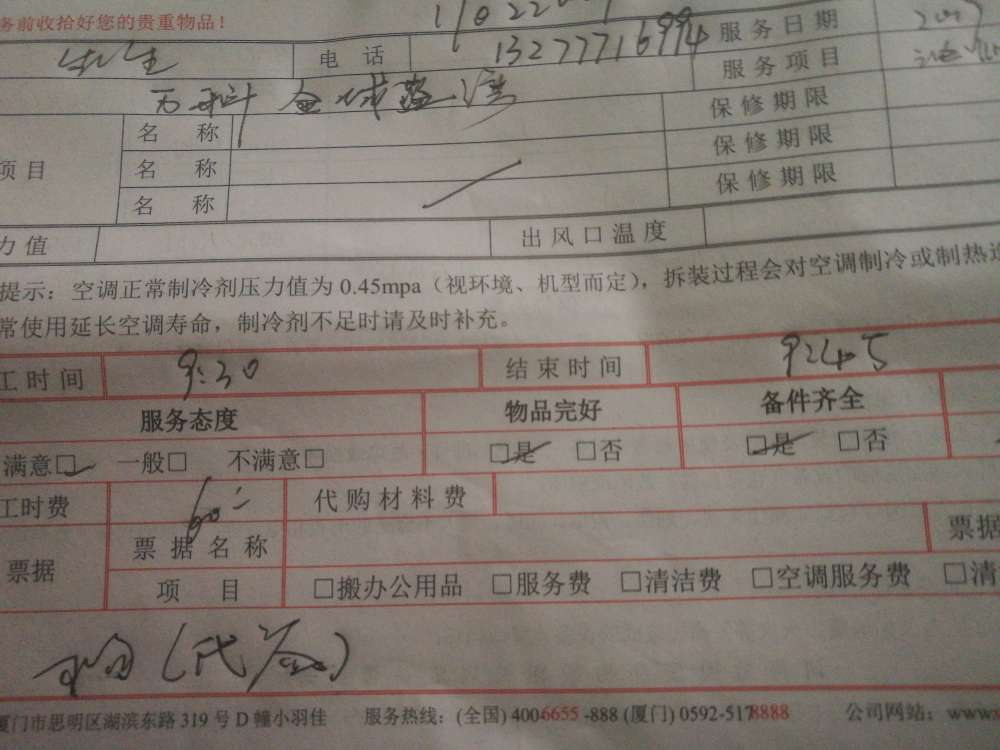 务前收拾好您的贵重物品！
先生 电话 13277716994 服务日期
万科金域蓝湾 服务项目
名称 保修期限
项目 名称 保修期限
名称 保修期限
力值 出风口温度
提示：空调正常制冷剂压力值为 0.45mpa（视环境、机型而定），拆装过程会对空调制冷或制热造
常使用延长空调寿命，制冷剂不足时请及时补充。
工时间 9:30 结束时间 9:45
服务态度 物品完好 备件齐全
满意□ 一般□ 不满意□ □是 □否 □是 □否
工时费 60 代购材料费
票据 票据名称 票据
项目 □搬办公用品 □服务费 □清洁费 □空调服务费 □清
(代签)
厦门市思明区湖滨东路 319 号 D 幢小羽佳 服务热线：(全国) 4006655 -888 (厦门) 0592-5178888 公司网站：www